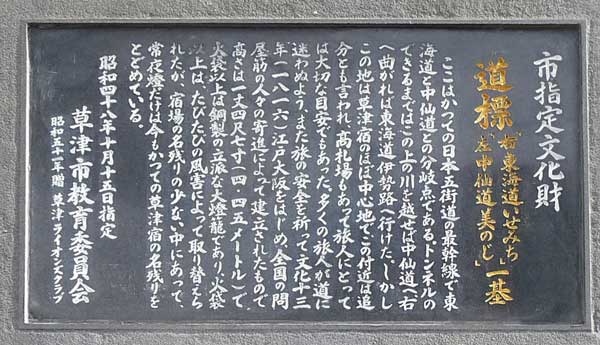 市指定文化財
道標 "右東海道いせみち" "左中仙道美のじ" 一基
ここはかつての日本五街道の最幹線で東
海道と中仙道との分岐点である。トンネルの
できるまではこの上の川を越せば中仙道へ、右
へ曲がれば東海道伊勢路へ行けた。しかし
この地は草津宿のほぼ中心地で、この付近は追
分とも言われ、高札場もあって旅人にとって
は大切な目安でもあった。多くの旅人が道に
迷わぬよう、また旅の安全を祈って文化十三
年(一八一六)江戸大阪をはじめ、全国の問
屋筋の人々の寄進によって建立されたもので
高さは一丈四尺七寸(四・四五メートル)で、
火袋以上は銅製の立派な大燈籠であり、火袋
以上は、たびたびの風害によって取り替えら
れたが、宿場の名残りの少ない中にあって、
常夜燈だけは今もかつての草津宿の名残りを
とどめている。
昭和四十八年十月十五日指定
草津市教育委員会
昭和五十一年贈 草津ライオンズクラブ